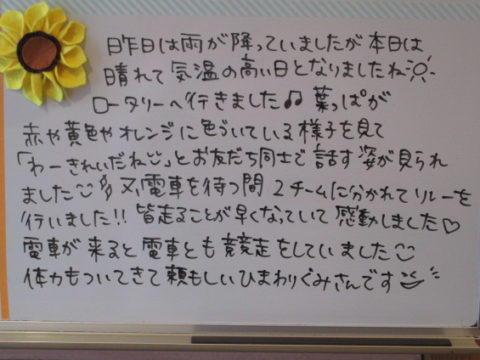 昨日は雨が降っていましたが本日は
晴れて気温の高い日となりましたね
ロータリーへ行きました♫ 葉っぱが
赤や黄色やオレンジに色づいている様子を見て
「わーきれいだね」とお友だち同士で話す姿が見られ
ました 又、電車を待つ間 2チームに分かれてリレーを
行いました!! 皆走ることが早くなっていて感動しました♡
電車が来ると電車とも競走をしていました
体力もついてきて頼もしいひまわりぐみさんです